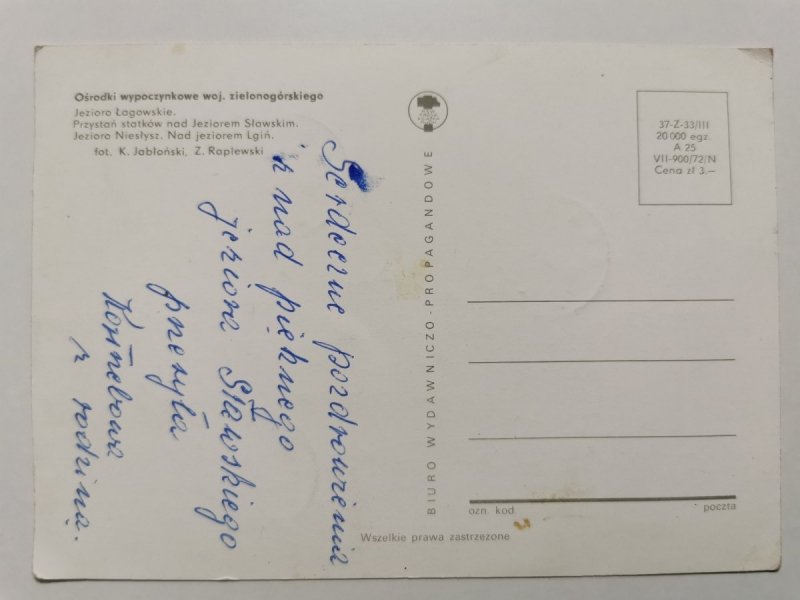 Ośrodki wypoczynkowe woj. zielonogórskiego
Jezioro Łagowskie.
Przystań statków nad Jeziorem Sławskim.
Jezioro Niesłysz. Nad jeziorem Lgiń.
fot. K. Jabłoński, Z. Raplewski
Serdeczne pozdrowienia
z nad pięknego
jeziora Sławskiego
przesyła
z rodziną.
BIURO WYDAWNICZO-PROPAGANDOWE
37-Z-33/III
20 000 egz.
A 25
VII-900/72/N
Cena zł 3.—
ozn. kod
poczta
Wszelkie prawa zastrzeżone